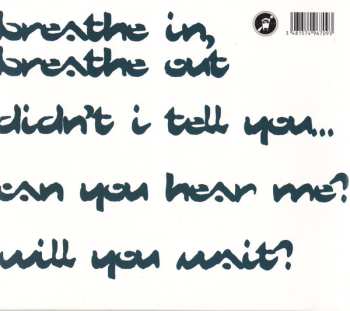 breathe in,
breathe out
didn't i tell you...
can you hear me?
will you wait?